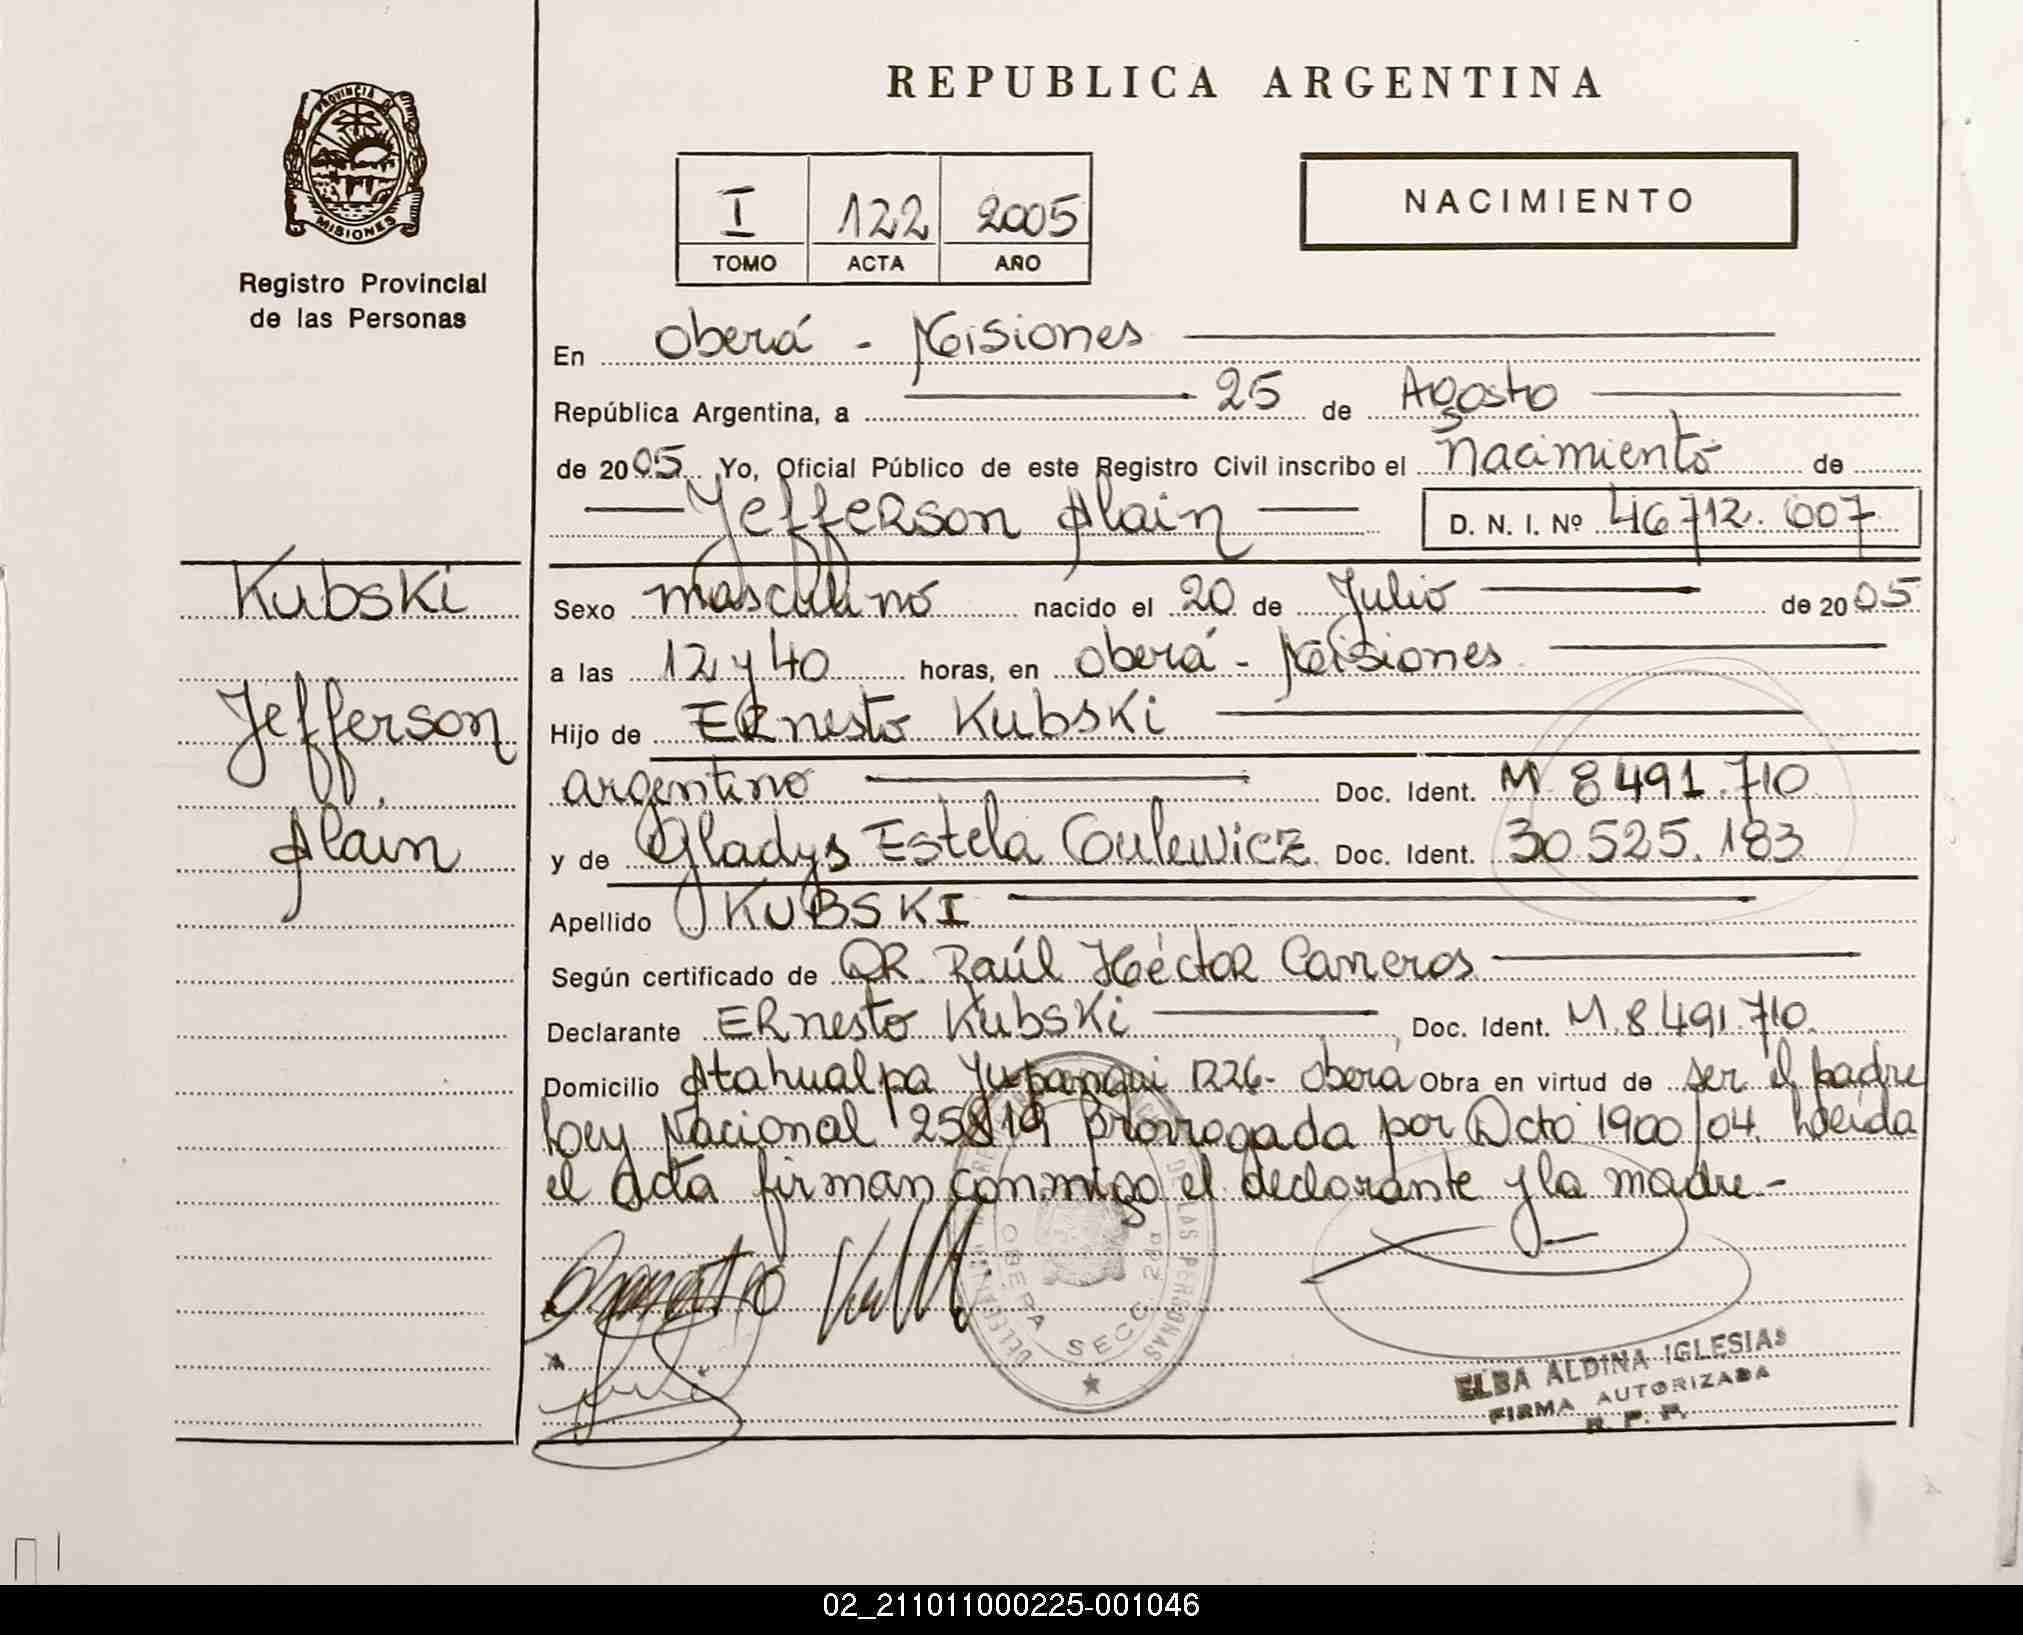 REPUBLICA ARGENTINA
PROVINCIA D
MISIONES
Registro Provincial
de las Personas
I 122 2005
TOMO ACTA AÑO
NACIMIENTO
En Oberá - Misiones
República Argentina, a 25 de Agosto
de 2005 Yo, Oficial Público de este Registro Civil inscribo el Nacimiento de
Jefferson Alain D. N. I. Nº 46.712.007
Kubski
Jefferson
Alain
Sexo masculino nacido el 20 de Julio de 2005
a las 12 y 40 horas, en Oberá - Misiones
Hijo de Ernesto Kubski
argentino Doc. Ident. M 8.491.710
y de Gladys Estela Coulewicz Doc. Ident. 30.525.183
Apellido KUBSKI
Según certificado de DR. Raúl Héctor Carreros
Declarante Ernesto Kubski, Doc. Ident. M.8.491.710
Domicilio Atahualpa Yupanqui 1226- Oberá Obra en virtud de ser el padre
Ley Nacional 25819 prorrogada por Dcto 1900/04. Leída
el acta firman conmigo el declarante y la madre.-
DE LAS PERSONAS
OBERA SECC. 2da
ELBA ALDINA IGLESIAS
FIRMA AUTORIZADA
R. P. P.
02_211011000225-001046